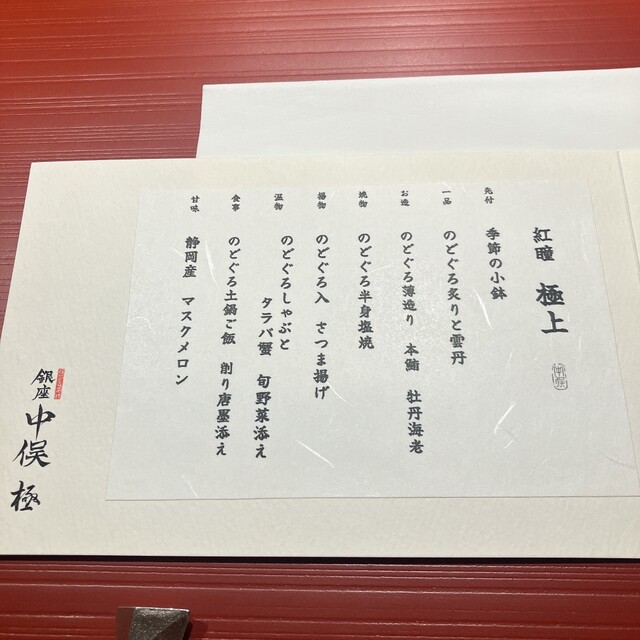 紅瞳 極上
先付 季節の小鉢
一品 のどぐろ炙りと雲丹
お造 のどぐろ薄造り 本鮪 牡丹海老
焼物 のどぐろ半身塩焼
揚物 のどぐろ入 さつま揚げ
温物 のどぐろしゃぶと
タラバ蟹 旬野菜添え
食事 のどぐろ土鍋ご飯 削り唐墨添え
甘味 静岡産 マスクメロン
銀座 中俣 極